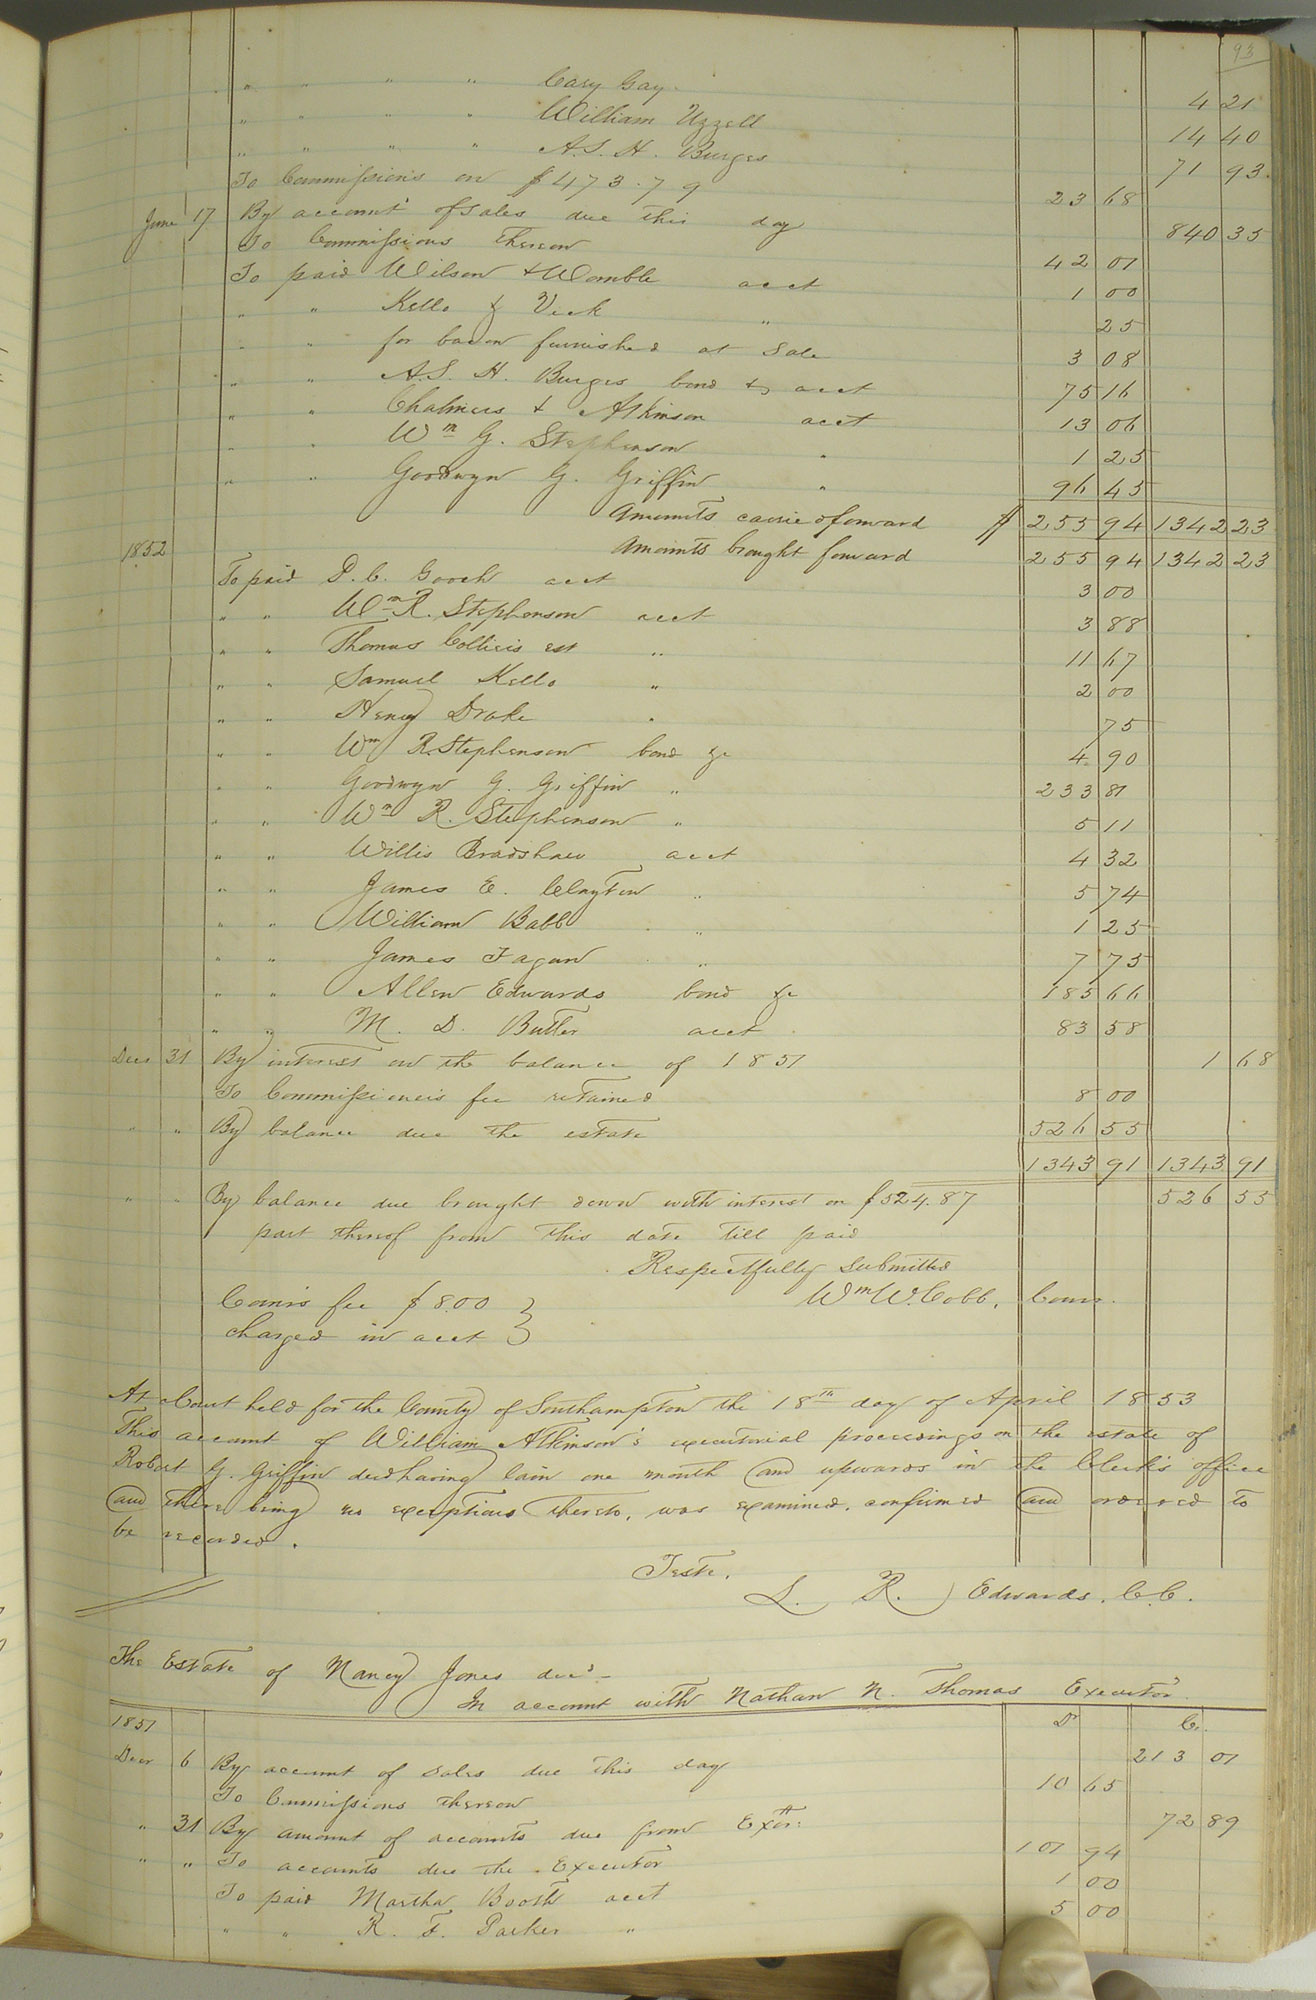 93
" " " " Cary Gay. 4 21
" " " " William Uzzell 14 40
" " " " A. S. H. Burges 71 93.
To Commissions on $473.79 23 68
June 17 By account of sales due this day 840 35
To Commissions thereon 42 01
To paid Wilson & Womble acct 1 00
" " Kello & Vick " 25
" " for bacon furnished at Sale 3 08
" " A. S. H. Burges bond & acct 75 16
" " Chalmers & Atkinson acct 13 06
" " Wm G. Stephenson " 1 25
" " Goodwyn G. Griffin " 96 45
Amounts carried forward $ 255 94 1342 23
1852 Amounts brought forward 255 94 1342 23
To paid D. C. Gooch acct 3 00
" " Wm R. Stephenson acct 3 88
" " Thomas Colliers est " 11 67
" " Samuel Kello " 2 00
" " Henry Drake " 75
" " Wm R. Stephenson bond &c 4 90
" " Goodwyn G. Griffin " 233 81
" " Wm R. Stephenson " 5 11
" " Willis Bradshaw acct 4 32
" " James E. Clayton " 5 74
" " William Babb " 1 25
" " James Fagan " 7 75
" " Allen Edwards bond &c 185 66
" " M. D. Butler acct 83 58
Decr 31 By interest on the balance of 1851 1 68
To Commissioners fee retained 8 00
" " By balance due the estate 526 55
1343 91 1343 91
" " By balance due brought down with interest on $524.87 526 55
part thereof from this date till paid
Respectfully submitted
Wm W. Cobb, Comr.
Comrs fee $8.00 }
charged in acct }
At a Court held for the County of Southampton the 18th day of April 1853
This account of William Atkinson's executorial proceedings on the estate of
Robert G. Griffin decd having lain one month and upwards in the Clerk's office
and there being no exceptions thereto, was examined, confirmed and ordered to
be recorded.
Teste,
L. R. Edwards, C.C.
The Estate of Nancy Jones decd
In account with Nathan N. Thomas Executor
1851 Dr Cr.
Decr 6 By account of sales due this day 213 01
To Commissions thereon 10 65
" 31 By amount of accounts due from Exor: 72 89
" " To accounts due the Executor 101 94
To paid Martha Booth acct 1 00
" " R. F. Parker " 5 00